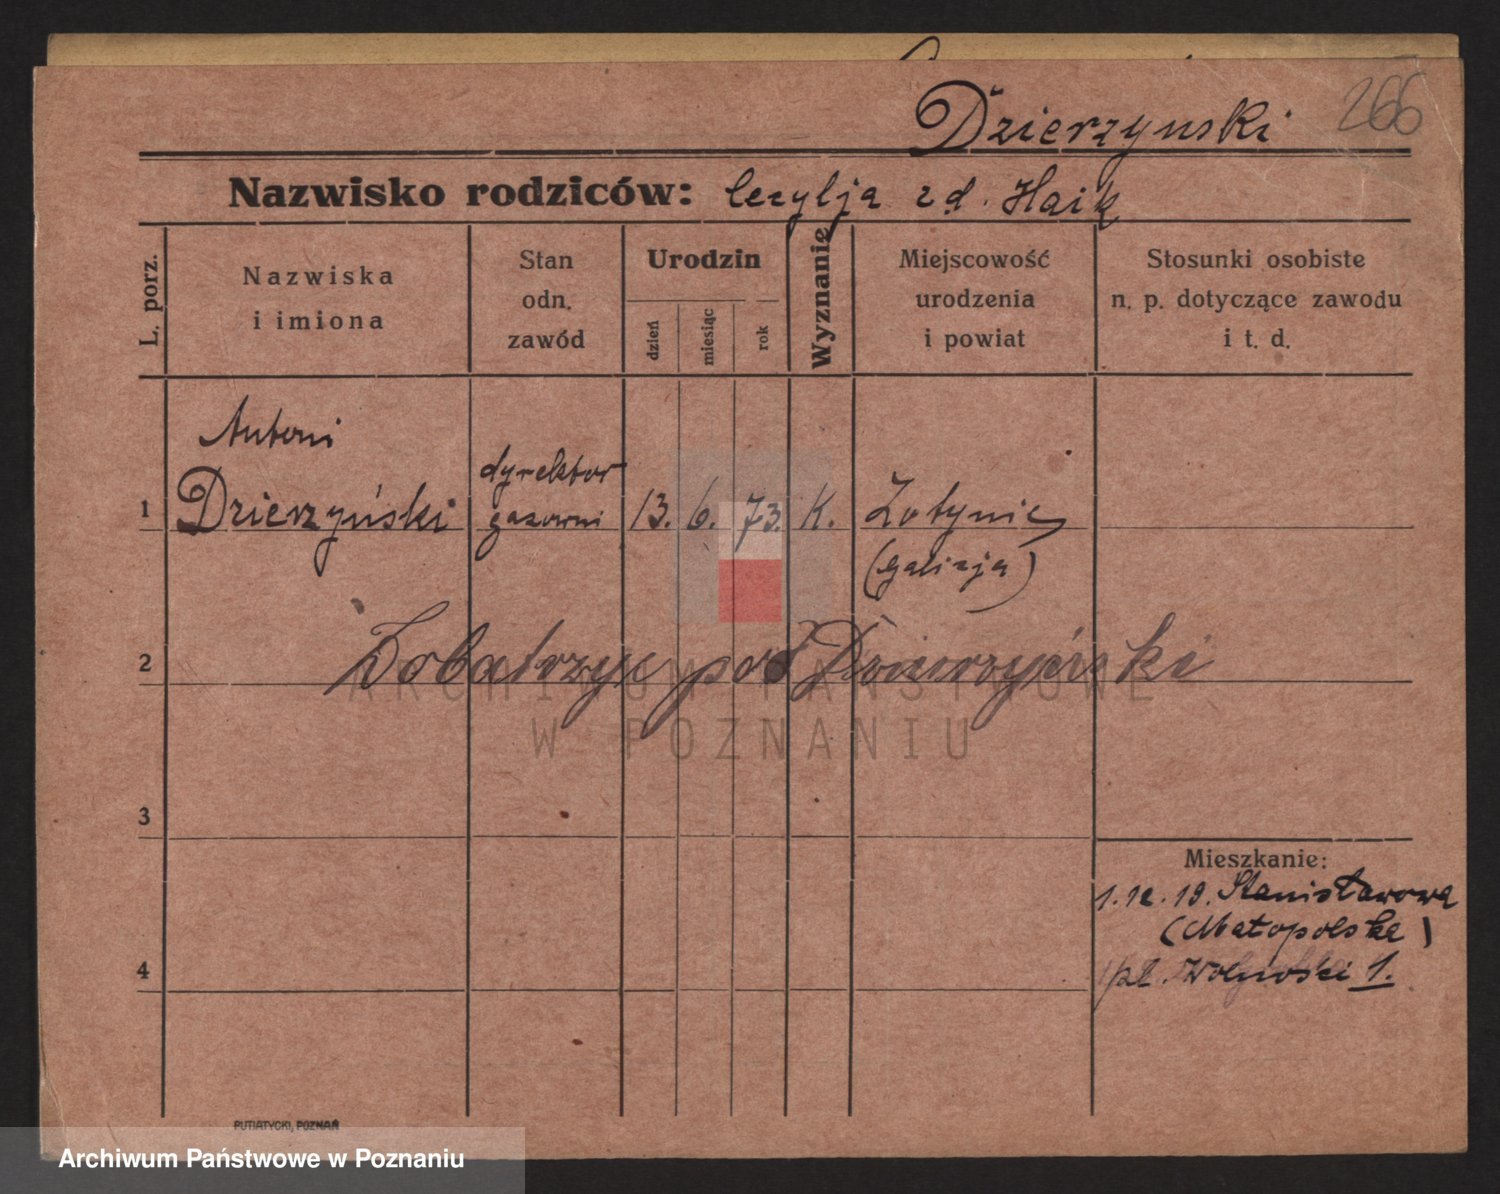 266
Dzierzynski
Nazwisko rodziców: Cezylja zd. Haik
L. porz.
Nazwiska
i imiona
Stan
odn.
zawód
Urodzin
dzień
miesiąc
rok
Wyznanie
Miejscowość
urodzenia
i powiat
Stosunki osobiste
n. p. dotyczące zawodu
i t. d.
Antoni
1 Dzierzyński
dyrektor
gazowni
13. 6. 73. K.
(Galicja)
2 pod Dzierzyński
ARCHIWUM PAŃSTWOWE
W POZNANIU
3
4
Mieszkanie:
1.12.19. Stanisławowa
(Małopolska)
pl. Wolności 1.
PUTIATYCKI, POZNAŃ
Archiwum Państwowe w Poznaniu